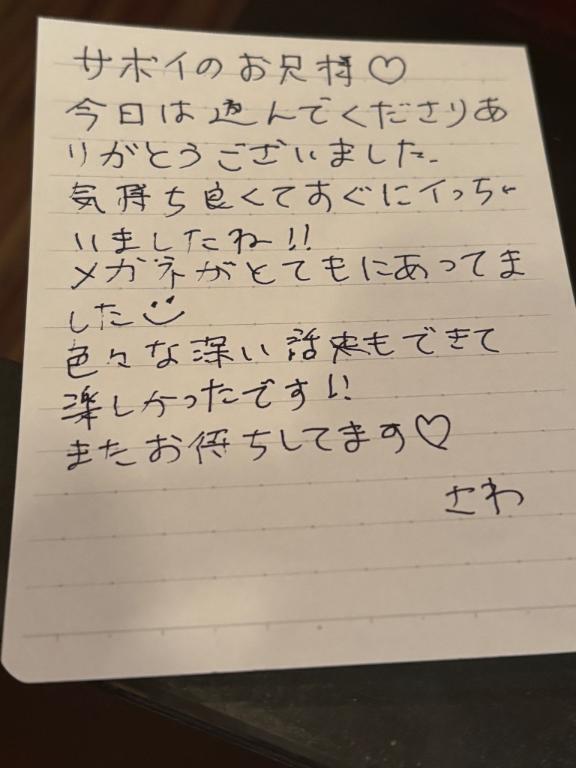 サボイのお兄様♡
今日は遊んでくださりあ
りがとうございました。
気持ち良くてすぐにイっちゃ
いましたね!!
メガネがとてもにあってま
した
色々な深い話もできて
楽しかったです!!
またお待ちしてます♡
さわ